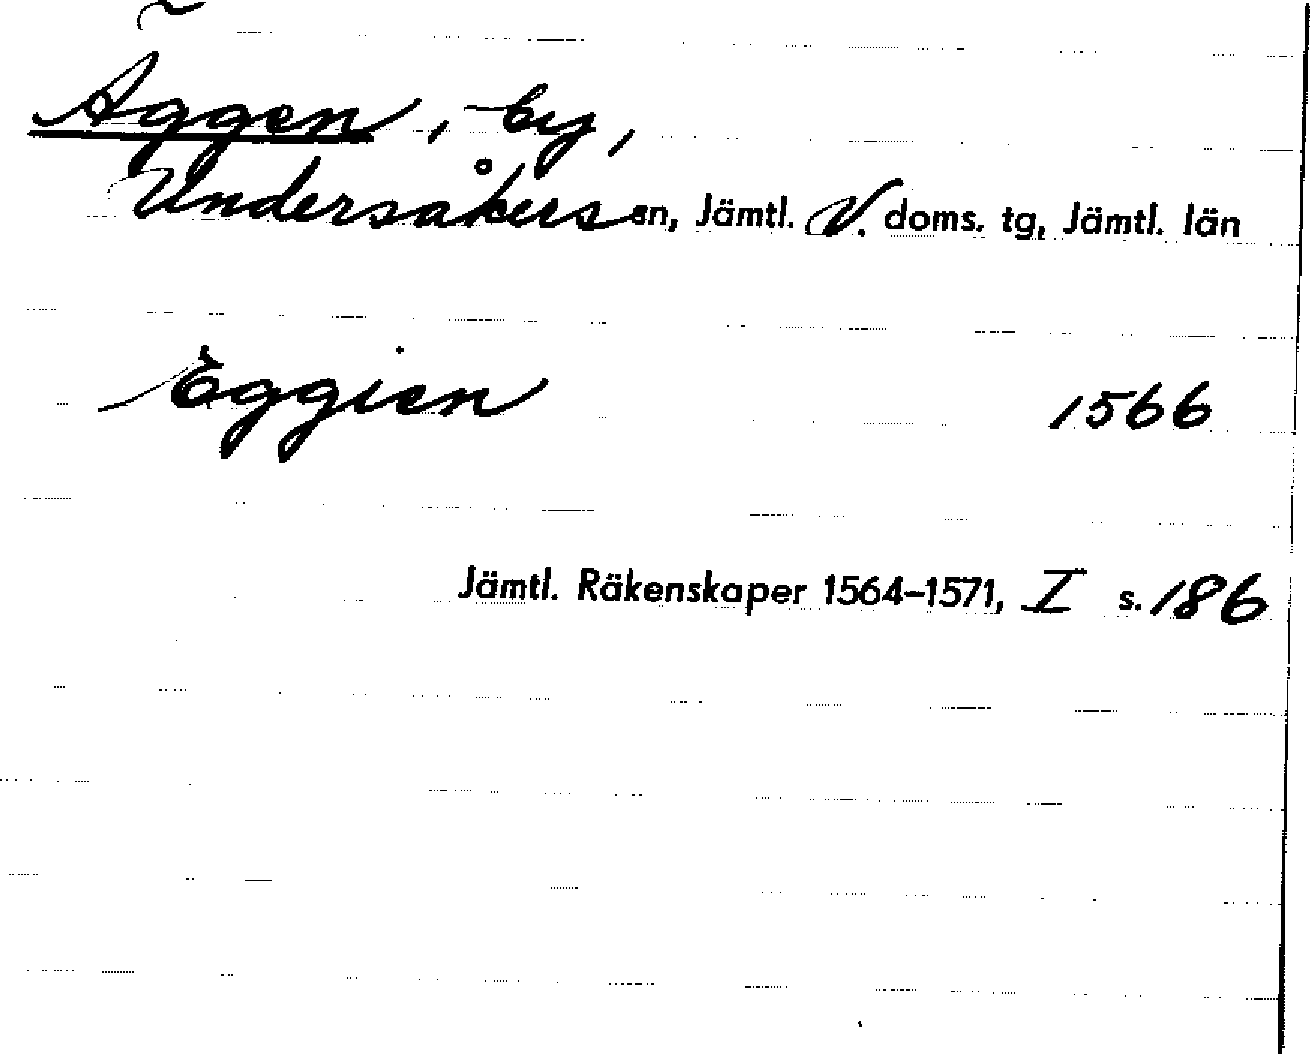 Äggen, by,
Undersåkers sn, Jämtl. V. doms. tg, Jämtl. län
Eggien 1566
Jämtl. Räkenskaper 1564–1571, I s. 186